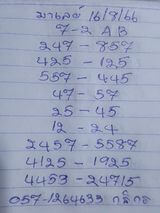 มาเลย์ 16/8/66
7-2 A B
247 - 857
425 - 125
557 - 445
47 - 57
25 - 45
12 - 24
2457 - 5587
4125 - 1925
4453 - 24715
057-1264633